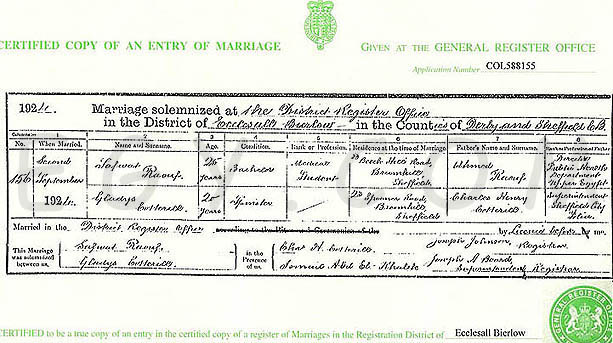 CERTIFIED COPY OF AN ENTRY OF MARRIAGE
GIVEN AT THE GENERAL REGISTER OFFICE
Application Number COL588155
192 Marriage solemnized at the District Register Office
in the District of Ecclesall Bierlow in the Counties of Derby and Sheffield C.B.
Columns:- 1 2 3 4 5 6 7 8
No. When Married. Name and Surname. Age. Condition. Rank or Profession. Residence at the time of Marriage Father's Name and Surname. Rank or Profession of Father
156 Second September 192
Safwat Raouf 26 years Bachelor Medical Student Road, Broomhill Sheffield Ahmed Raouf Director Public Health Department Upper Egypt
Gladys Cotterill years Spinster Road, Broomhill Sheffield Charles Henry Cotterill Superintendent Sheffield City
Married in the District Register Office by Licence before by me.
This Marriage was solemnized between us,
Safwat Raouf
Gladys Cotterill
in the Presence of us.
Chas H. Cotterill
Abd El-
Joseph Johnson, Registrar
Joseph A Superintendent Registrar
CERTIFIED to be a true copy of an entry in the certified copy of a register of Marriages in the Registration District of Ecclesall Bierlow
GENERAL REGISTER